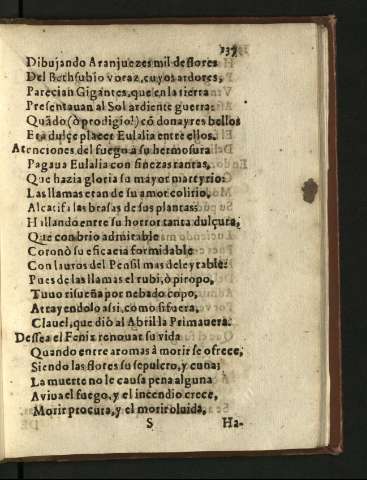 137
Dibujando Aranjuezes mil de flores
Del Bethsubio voraz, cuyos ardores,
Parecian Gigantes, que en la tierra
Presentauan al Sol ardiente guerra:
Quãdo (ò prodigio!) cõ donayres bellos
Era dulçe placer Eulalia entre ellos.
Atenciones del fuego à su hermosura
Pagaua Eulalia con finezas tantas,
Que hazia gloria su mayor martyrio:
Las llamas eran de su amor colirio,
Alcatifa las brasas de sus plantas:
Hallando entre su horror tanta dulçura,
Que con brio admirable
Coronò su eficacia formidable
Con lauros del Pensil mas deleytable:
Pues de las llamas el rubi, ò piropo,
Tuuo risueña por nebado copo,
Atrayendolo assi, como si fuera,
Clauel, que diò al Abril la Primauera.
Dessea el Feniz renouar su vida
Quando entre aromas à morir se ofrece,
Siendo las flores su sepulcro, y cuna;
La muerte no le causa pena alguna
Aviua el fuego, y el incendio crece,
Morir procura, y el morir oluida,
S Ha-